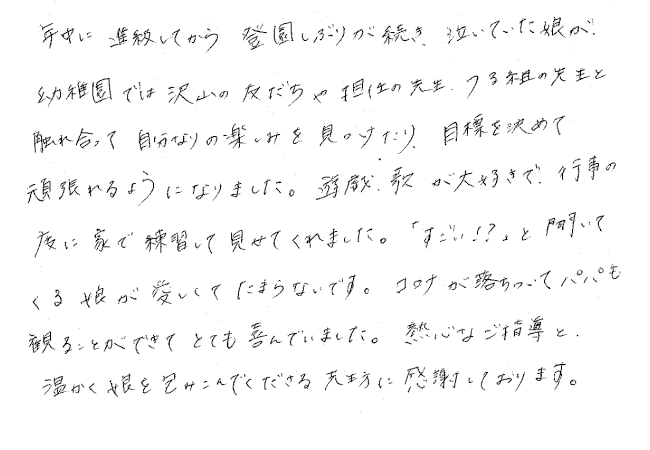 年中に進級してから登園しぶりが続き、泣いていた娘が、
幼稚園では沢山の友だちや担任の先生、つる組の先生と
触れ合って自分なりの楽しみを見つけたり、目標を決めて
頑張れるようになりました。遊戯、歌が大好きで、行事の
度に家で練習して見せてくれました。「すごい!?」と聞いて
くる娘が愛しくてたまらないです。コロナが落ちついてパパも
観ることができてとても喜んでいました。熱心なご指導と、
温かく娘を包みこんでくださる先生方に感謝しております。